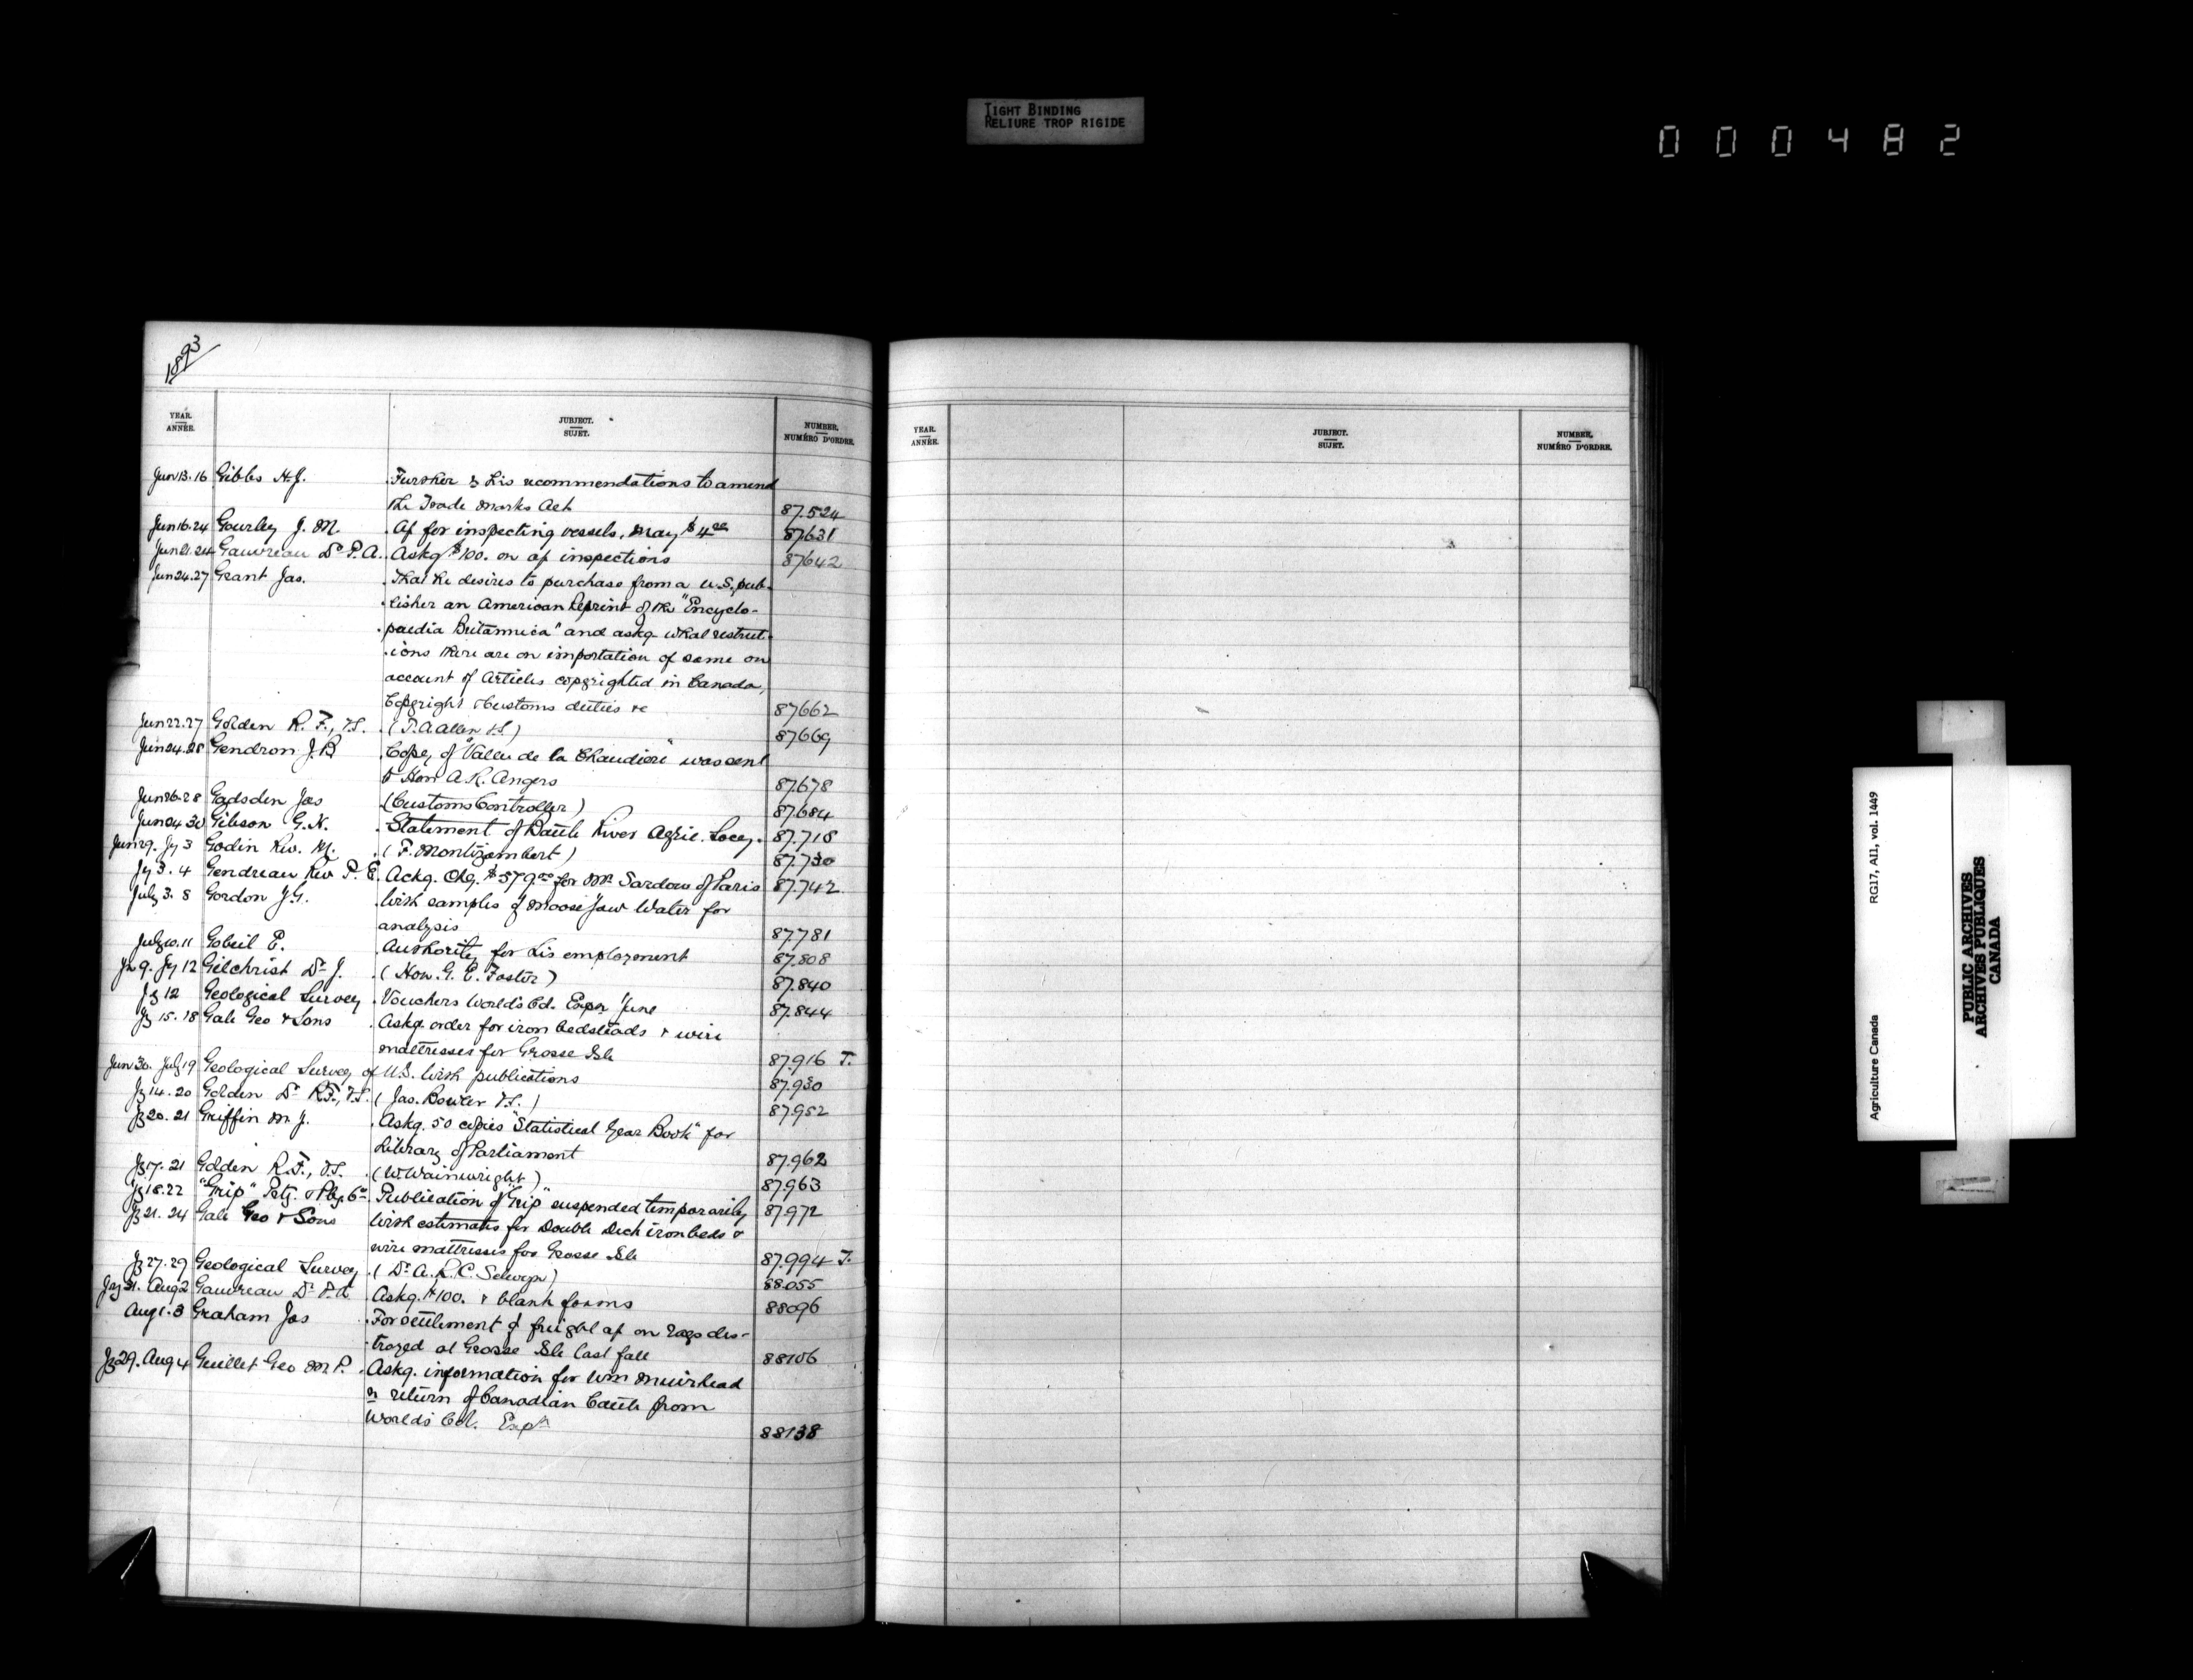 TIGHT BINDING
RELIURE TROP RIGIDE
000482
1893
YEAR. ANNÉE. JUBJECT. SUJET. NUMBER. NUMÉRO D'ORDRE.
YEAR. ANNÉE. JUBJECT. SUJET. NUMBER. NUMÉRO D'ORDRE.
Jun 13. 16 Gibbs H.J. Further to his recommendations to amend
the Trade Marks Act 87.524
Jun 16. 24 Gourley J. M. a/c for inspecting vessels, May $4 00 87631
Jun 21. 24 Gauvreau Dr P. A. Askg $100. on a/c inspections 87642
Jun 24. 27 Grant Jas. That he desires to purchase from a U.S. pub-
lisher an American Reprint of the "Encyclo-
paedia Britannica" and askg what restrict-
ions there are on importation of same on
account of Articles copyrighted in Canada,
Copyright & Customs duties &c 87662
Jun 22. 27 Golden R. F., V.S. (T. A. Allen V.S.) 87669
Jun 24. 28 Gendron J.B Copy of "Vallee de la Chaudiere" was sent
to Hon A. R. Angers 87.678
Jun 26. 28 Gadsden Jas (Customs Controller) 87.684
Jun 24 30 Gibson G. H. Statement of Battle River Agric. Socy. 87.718
Jun 29. Jy 3 Godin Rev. M. (F. Montizambert) 87.730
Jy 3. 4 Gendreau Rev P. E. Ackg. Chq. $579.00 for Mr Sardow of Paris 87.742
July 3. 8 Gordon J.G. With samples of Moose Jaw Water for
analysis 87.781
July 10. 11 Gobeil E. Authority for his employment 87.808
Jn 9. Jy 12 Gilchrist Dr J. (Hon. G. E. Foster) 87.840
Jy 12 Geological Survey Vouchers World's Col. Expn June 87.844
Jy 15. 18 Gale Geo & Sons Askg. order for iron bedsteads & wire
mattresses for Grosse Isle 87.916 T.
Jun 30. July 19 Geological Survey of U.S. With publications 87.930
Jy 14. 20 Golden Dr R.F., V.S. (Jas. Bowler V.S.) 87.952
Jy 20. 21 Griffin M. J. Askg. 50 copies "Statistical Year Book" for
Library of Parliament 87.962
Jy 17. 21 Golden R. F., V.S. (W. Wainwright) 87.963
Jy 18. 22 "Grip" Ptg. & Pbg Co Publication of "Grip" suspended temporarily 87.972
Jy 21. 24 Gale Geo & Sons With estimates for Double Deck iron beds &
wire mattresses for Grosse Isle 87.994 T.
Jy 27. 29 Geological Survey (Dr A. R. C. Selwyn) 88.055
Jy 31. Aug 2 Gauvreau Dr P. A. Askg. $100. & blank forms 88096
Aug 1. 3 Graham Jas For settlement of freight a/c on rags des-
troyed at Grosse Isle last fall 88106
Jy 29. Aug 4 Guillet Geo M.P. Askg. information for Wm Muirhead
re return of Canadian Cattle from
World's Col. Expn 88138
Agriculture Canada RG17, AII, vol. 1449
PUBLIC ARCHIVES
ARCHIVES PUBLIQUES
CANADA